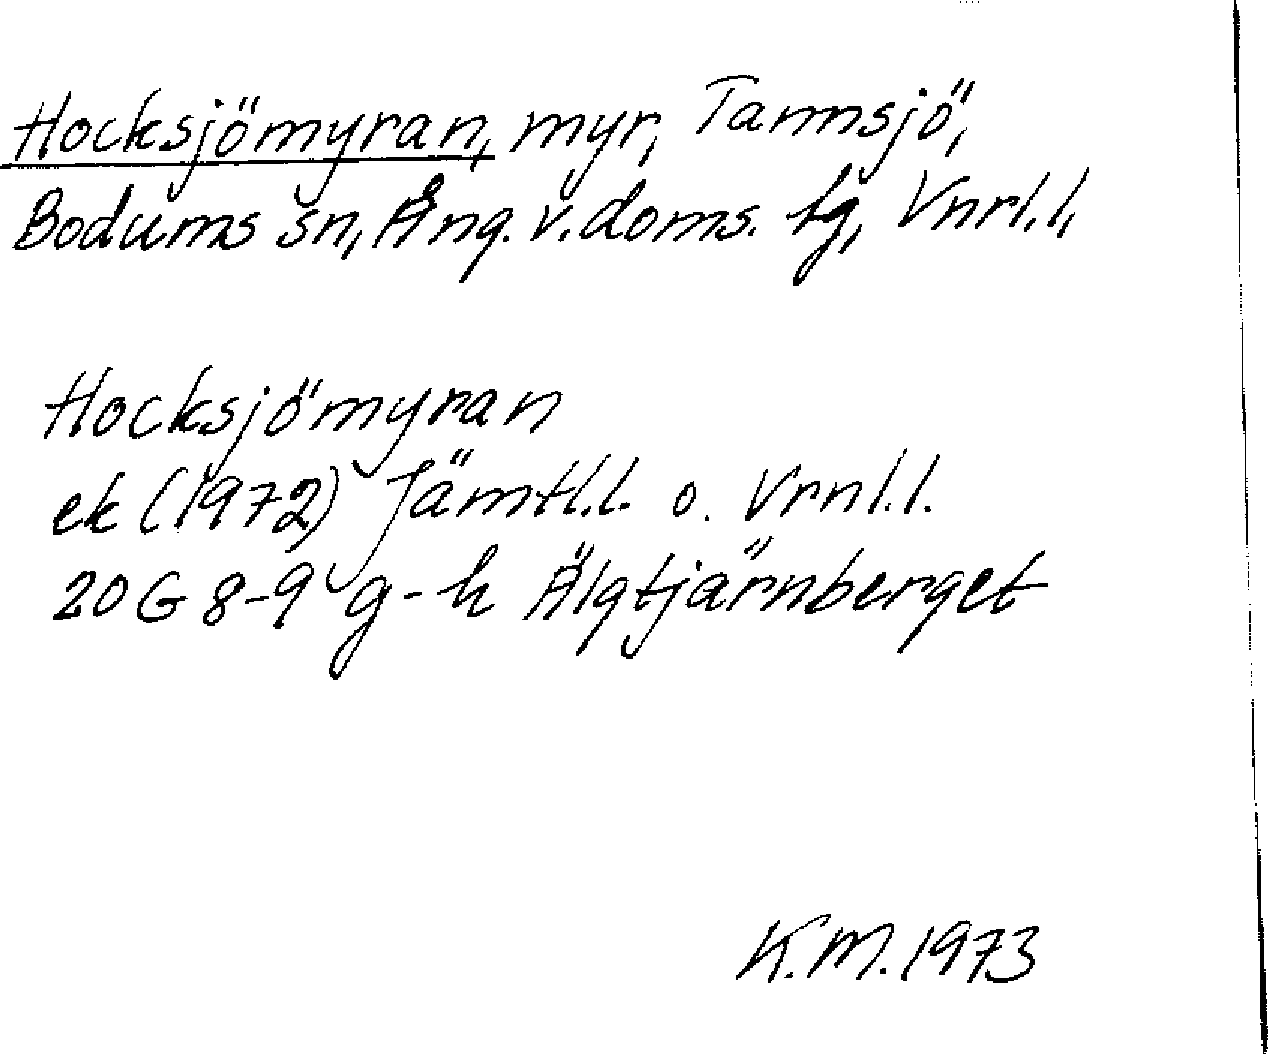 Hocksjömyran, myr, Tannsjö,
Bodums sn, Ång. v. doms. tg, Vnrl.l,
Hocksjömyran
ek (1972) Jämtl.l. o. Vrnl.l.
20 G 8-9 g-h Älgtjärnberget
K.M. 1973